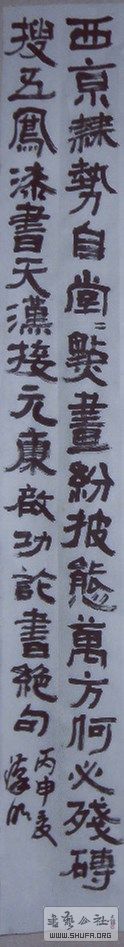 西京隸勢自堂〻點畫紛披態萬方何必殘磚
搜五鳳漆書天漢接元康啟功論書絕句
丙申夏
書法公社
WWW.SHUFA.ORG